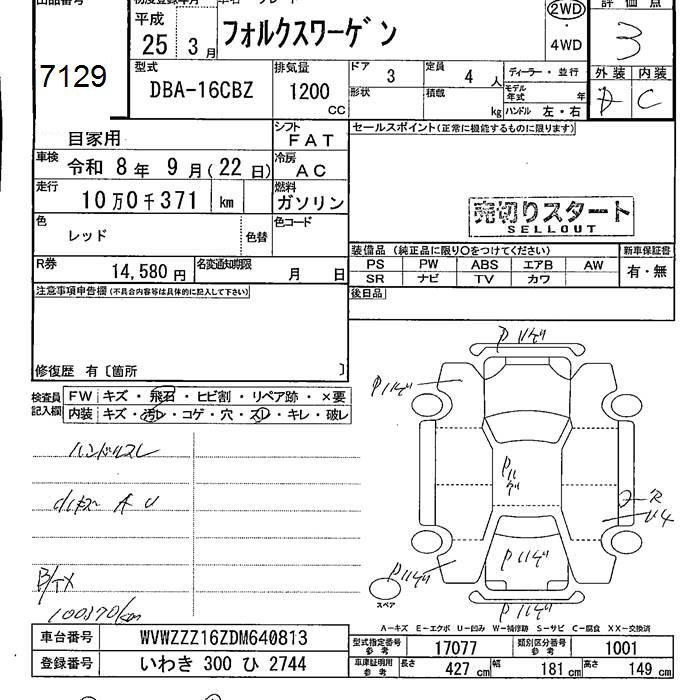 7129
平成
25 3月
フォルクスワーゲン
2WD
・
4WD
評価点
3
外装 内装
C
型式
DBA-16CBZ
排気量
1200 CC
ドア 3
定員 4 人
形状
積載 kg
ディーラー・並行
モデル年式 年
ハンドル 左・右
自家用
シフト FAT
セールスポイント(正常に機能するものに限ります)
車検 令和 8年 9月(22日)
冷房 AC
走行 10万0千371 km
燃料 ガソリン
売切りスタート
SELLOUT
色 レッド
色替
色コード
装備品 (純正品に限り○をつけてください)
新車保証書
PS PW ABS エアB AW
有・無
SR ナビ TV カワ
R券 14,580円
名変通知期限 月 日
後日品
注意事項申告欄(不具合内容等は具体的に記入して下さい)
修復歴 有〔箇所 〕
検査員記入欄
FW キズ・飛石・ヒビ割・リペア跡・×要
内装 キズ・汚レ・コゲ・穴・スレ・キレ・破レ
ハンドルスレ
B/TX
100370/km
スペア
A―キズ E―エクボ U―凹み W―補修跡 S―サビ C―腐食 XX―交換済
車台番号 WVWZZZ16ZDM640813
型式指定番号 参考 17077
類別区分番号 参考 1001
登録番号 いわき 300 ひ 2744
車庫証明用 参考 長さ 427 cm 幅 181 cm 高さ 149 cm